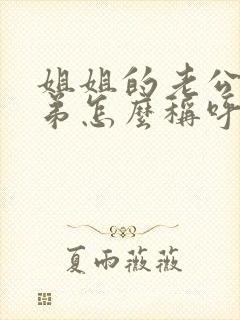 姐姐的老公
弟怎麼稱呼
夏雨薇薇